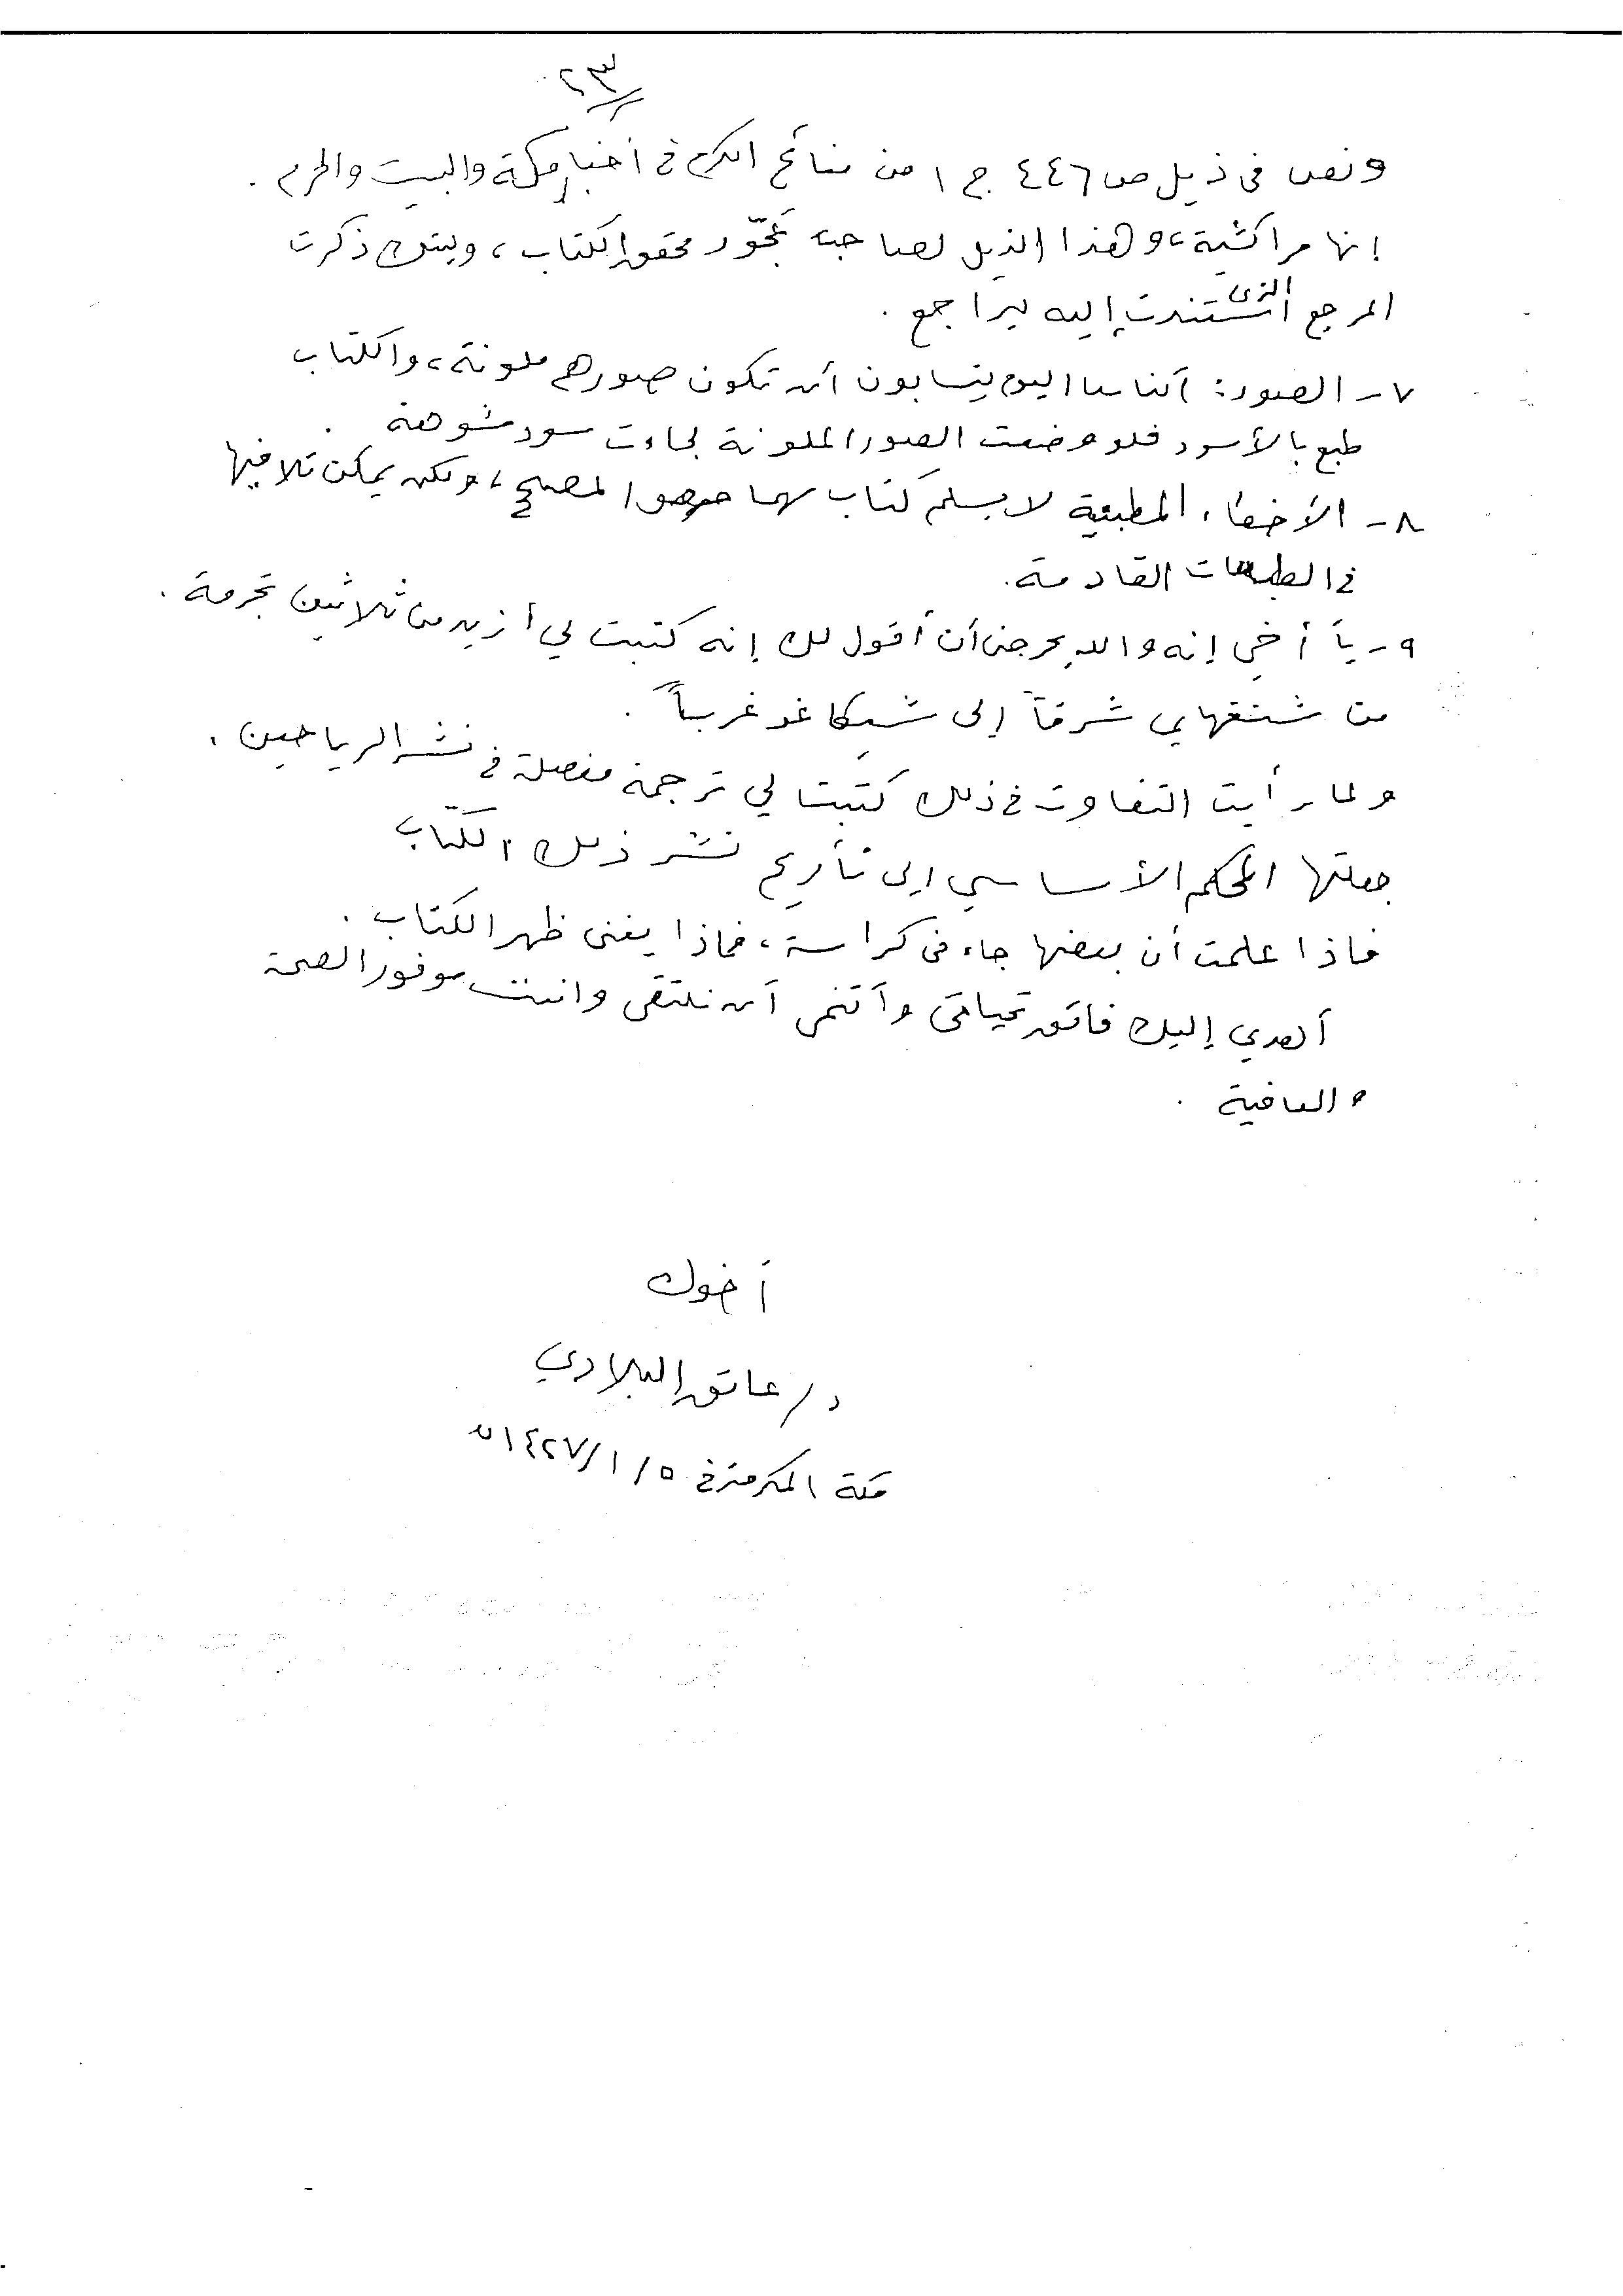 ٢٣
ونص فى ذيل ص ٤٤٦ ج ١ من منائح الكرم في أخبار مكة والبيت والحرم .
إنها مراكشية، وهذا الذيل لصاحب محقق الكتاب ، وليتك ذكرت
المرجع الذى استندت إليه ليراجع .
٧ - الصور : الناس اليوم يتسابون أن تكون صورهم ملونة ، والكتاب
طبع بالأسود فلو وضعت الصور الملونة لجاءت سود مشوهة .
٨ - الأخطاء المطبعية لا يسلم كتاب مهما حرصوا لمصحح ، ولكن يمكن تلافيها
في الطبعات القادمة .
٩ - يا أخي إنه والله يحرجنى أن أقول لك إنه كتبت لي أزيد من ثلاثين ترجمة .
من شنغهاي شرقاً إلى شيكاغو غرباً .
ولما رأيت التفاوت في ذلك كتبت لي ترجمة مفصلة في نشر الرياحين .
جعلتها المحكم الأساسي إلى تأريخ نشر ذلك الكتاب
فاذا علمت أن بعضها جاء فى كراسة ، فماذا يغنى ظهر الكتاب .
أهدي إليك فائق تحياتى وأتمنى أن نلتقى وانت موفور الصحة
والعافية .
أخوك
د / عاتق البلادي
مكة المكرمة في ٥ / ١ / ١٤٢٧ هـ